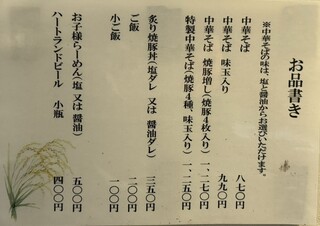 お品書き
※中華そばの味は、塩と醤油からお選びいただけます。
中華そば 八七〇円
中華そば 味玉入り 九九〇円
中華そば 焼豚増し(焼豚4枚入り) 一、二七〇円
特製中華そば(焼豚4種、味玉入り) 一、二五〇円
炙り焼豚丼(塩ダレ 又は 醤油ダレ) 三五〇円
ご飯 二〇〇円
小ご飯 一〇〇円
お子様らーめん(塩 又は 醤油) 五〇〇円
ハートランドビール 小瓶 四〇〇円